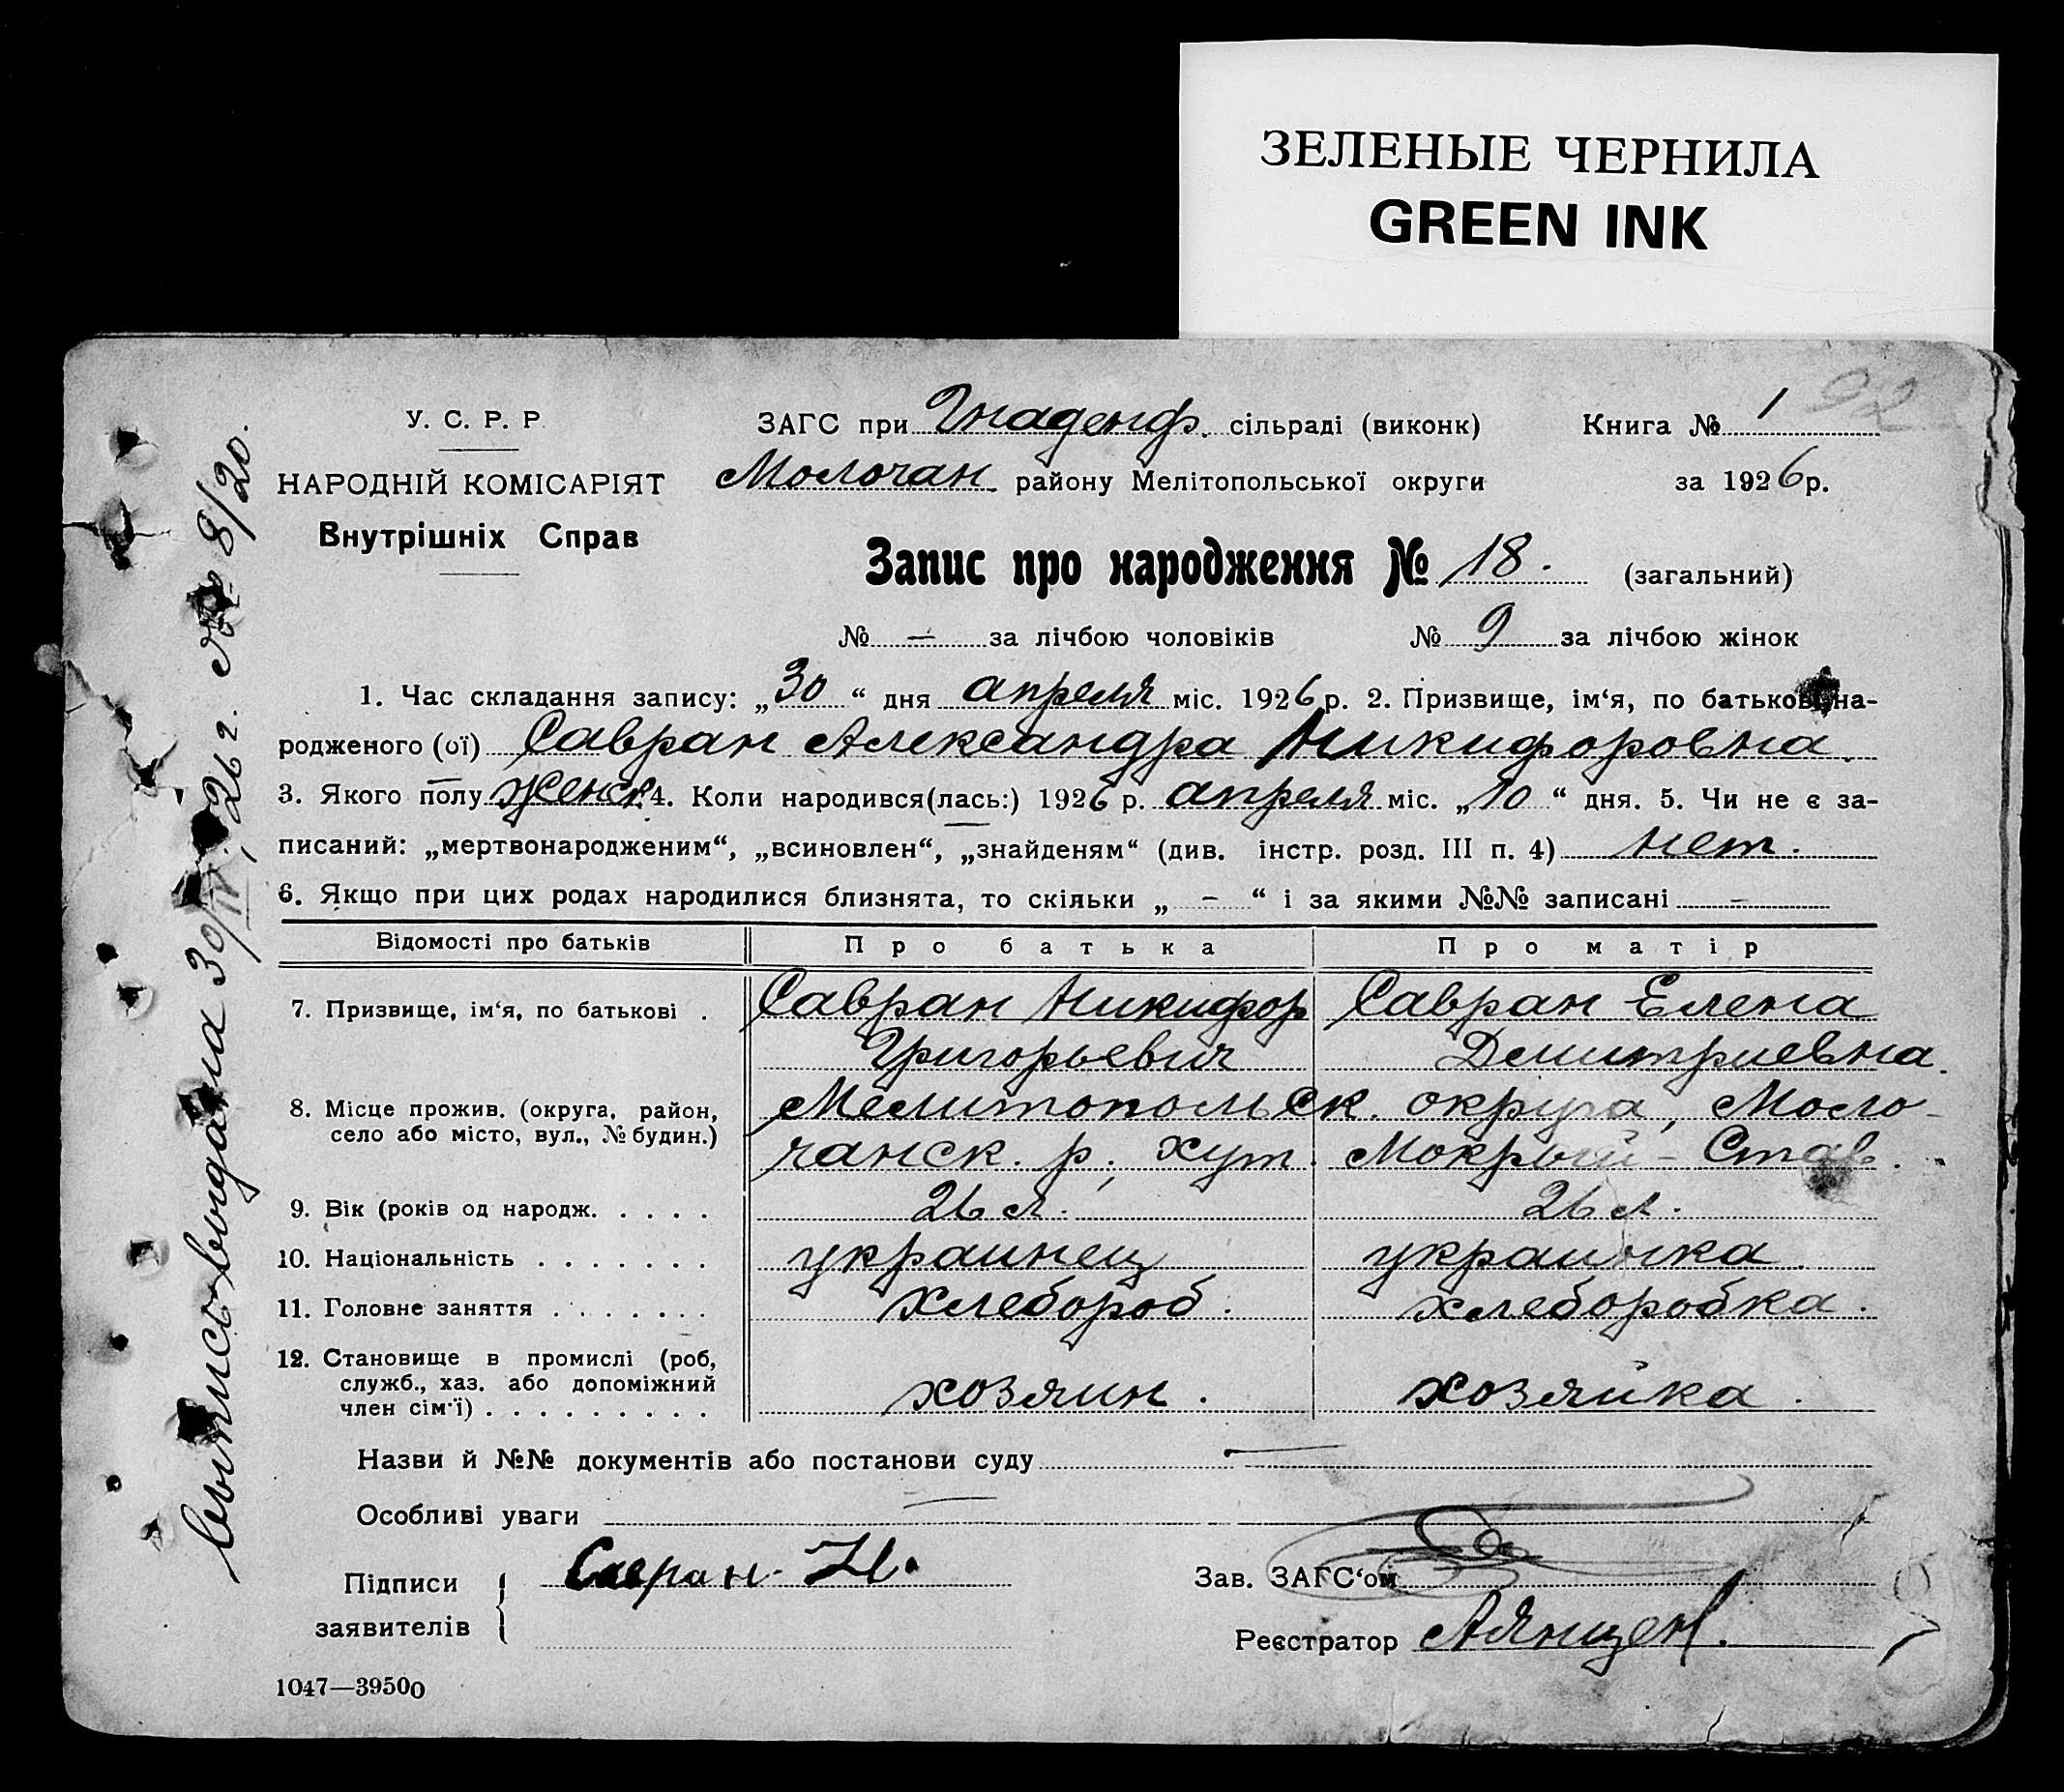 ЗЕЛЕНЫЕ ЧЕРНИЛА
GREEN INK
92
У. С. Р. Р.
НАРОДНІЙ КОМІСАРІЯТ
Внутрішніх Справ
ЗАГС при Гнаденф. сільраді (виконк) Книга № 1
Молочан. району Мелітопольської округи за 1926 р.
Запис про народження № 18. (загальний)
№ — за лічбою чоловіків № 9 за лічбою жінок
1. Час складання запису: „30“ дня апреля міс. 1926 р. 2. Призвище, ім‘я, по батькові на-
родженого (ої) Савран Александра Никифоровна
3. Якого полу женск. 4. Коли народився(лась:) 1926 р. апреля міс. „10“ дня. 5. Чи не є за-
писаний: „мертвонародженим“, „всиновлен“, „знайденям“ (див. інстр. розд. III п. 4) нет.
6. Якщо при цих родах народилися близнята, то скільки „ - “ і за якими №№ записані -
Відомості про батьків Про батька Про матір
7. Призвище, ім‘я, по батькові . Савран Никифор Савран Елена
Григорьевич Дмитриевна.
8. Місце прожив. (округа, район, Мелитопольск. округа, Моло-
село або місто, вул., № будин.) чанск. р., хут. Мокрый - Став.
9. Вік (років од народж. . . . . 26 л. 26 л.
10. Національність . . . . . . . украинец украинка.
11. Головне заняття . . . . . . . хлебороб. хлеборобка.
12. Становище в промислі (роб,
служб., хаз. або допоміжний хозяин. хозяйка.
член сім‘ї) . . . . . . . . .
Назви й №№ документів або постанови суду —
Особливі уваги —
Підписи Савран. Н. Зав. ЗАГС‘ом
заявителів Реєстратор А Янцен.
1047—39500
Выпись выдана 30/IV, 26 г. № 8/20.